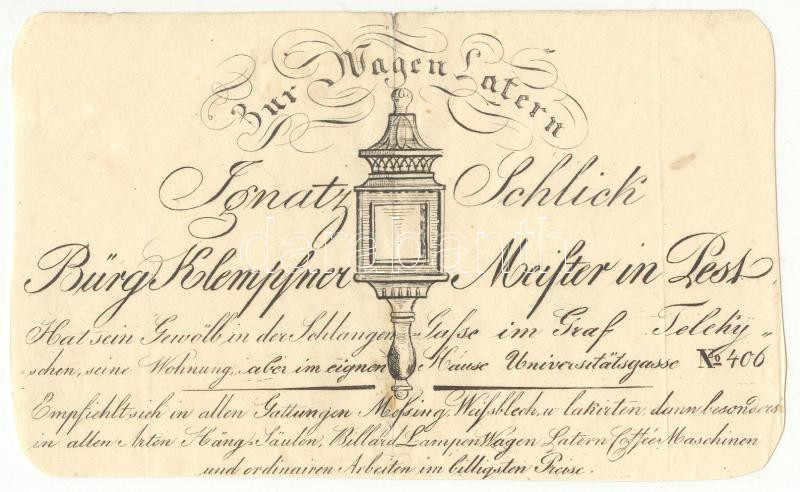 Zur Wagen Latern
Ignatz Schlick
Bürg Klempfner Meister in Pest
Hat sein Gewölb in der Schlangen-Gaſse im Graf Telekÿ„
schen, seine Wohnung, aber im eignen Hause Universitätsgasse No 406
Empfiehlt sich in allen Gattungen Meſsing, Weiſsblech, u lakirten, dann besonders
in allen Arten Häng-Säulen, Billard Lampen Wagen Latern Coffée Maschinen
und ordinairen Arbeiten im billigsten Preise.
darabanth